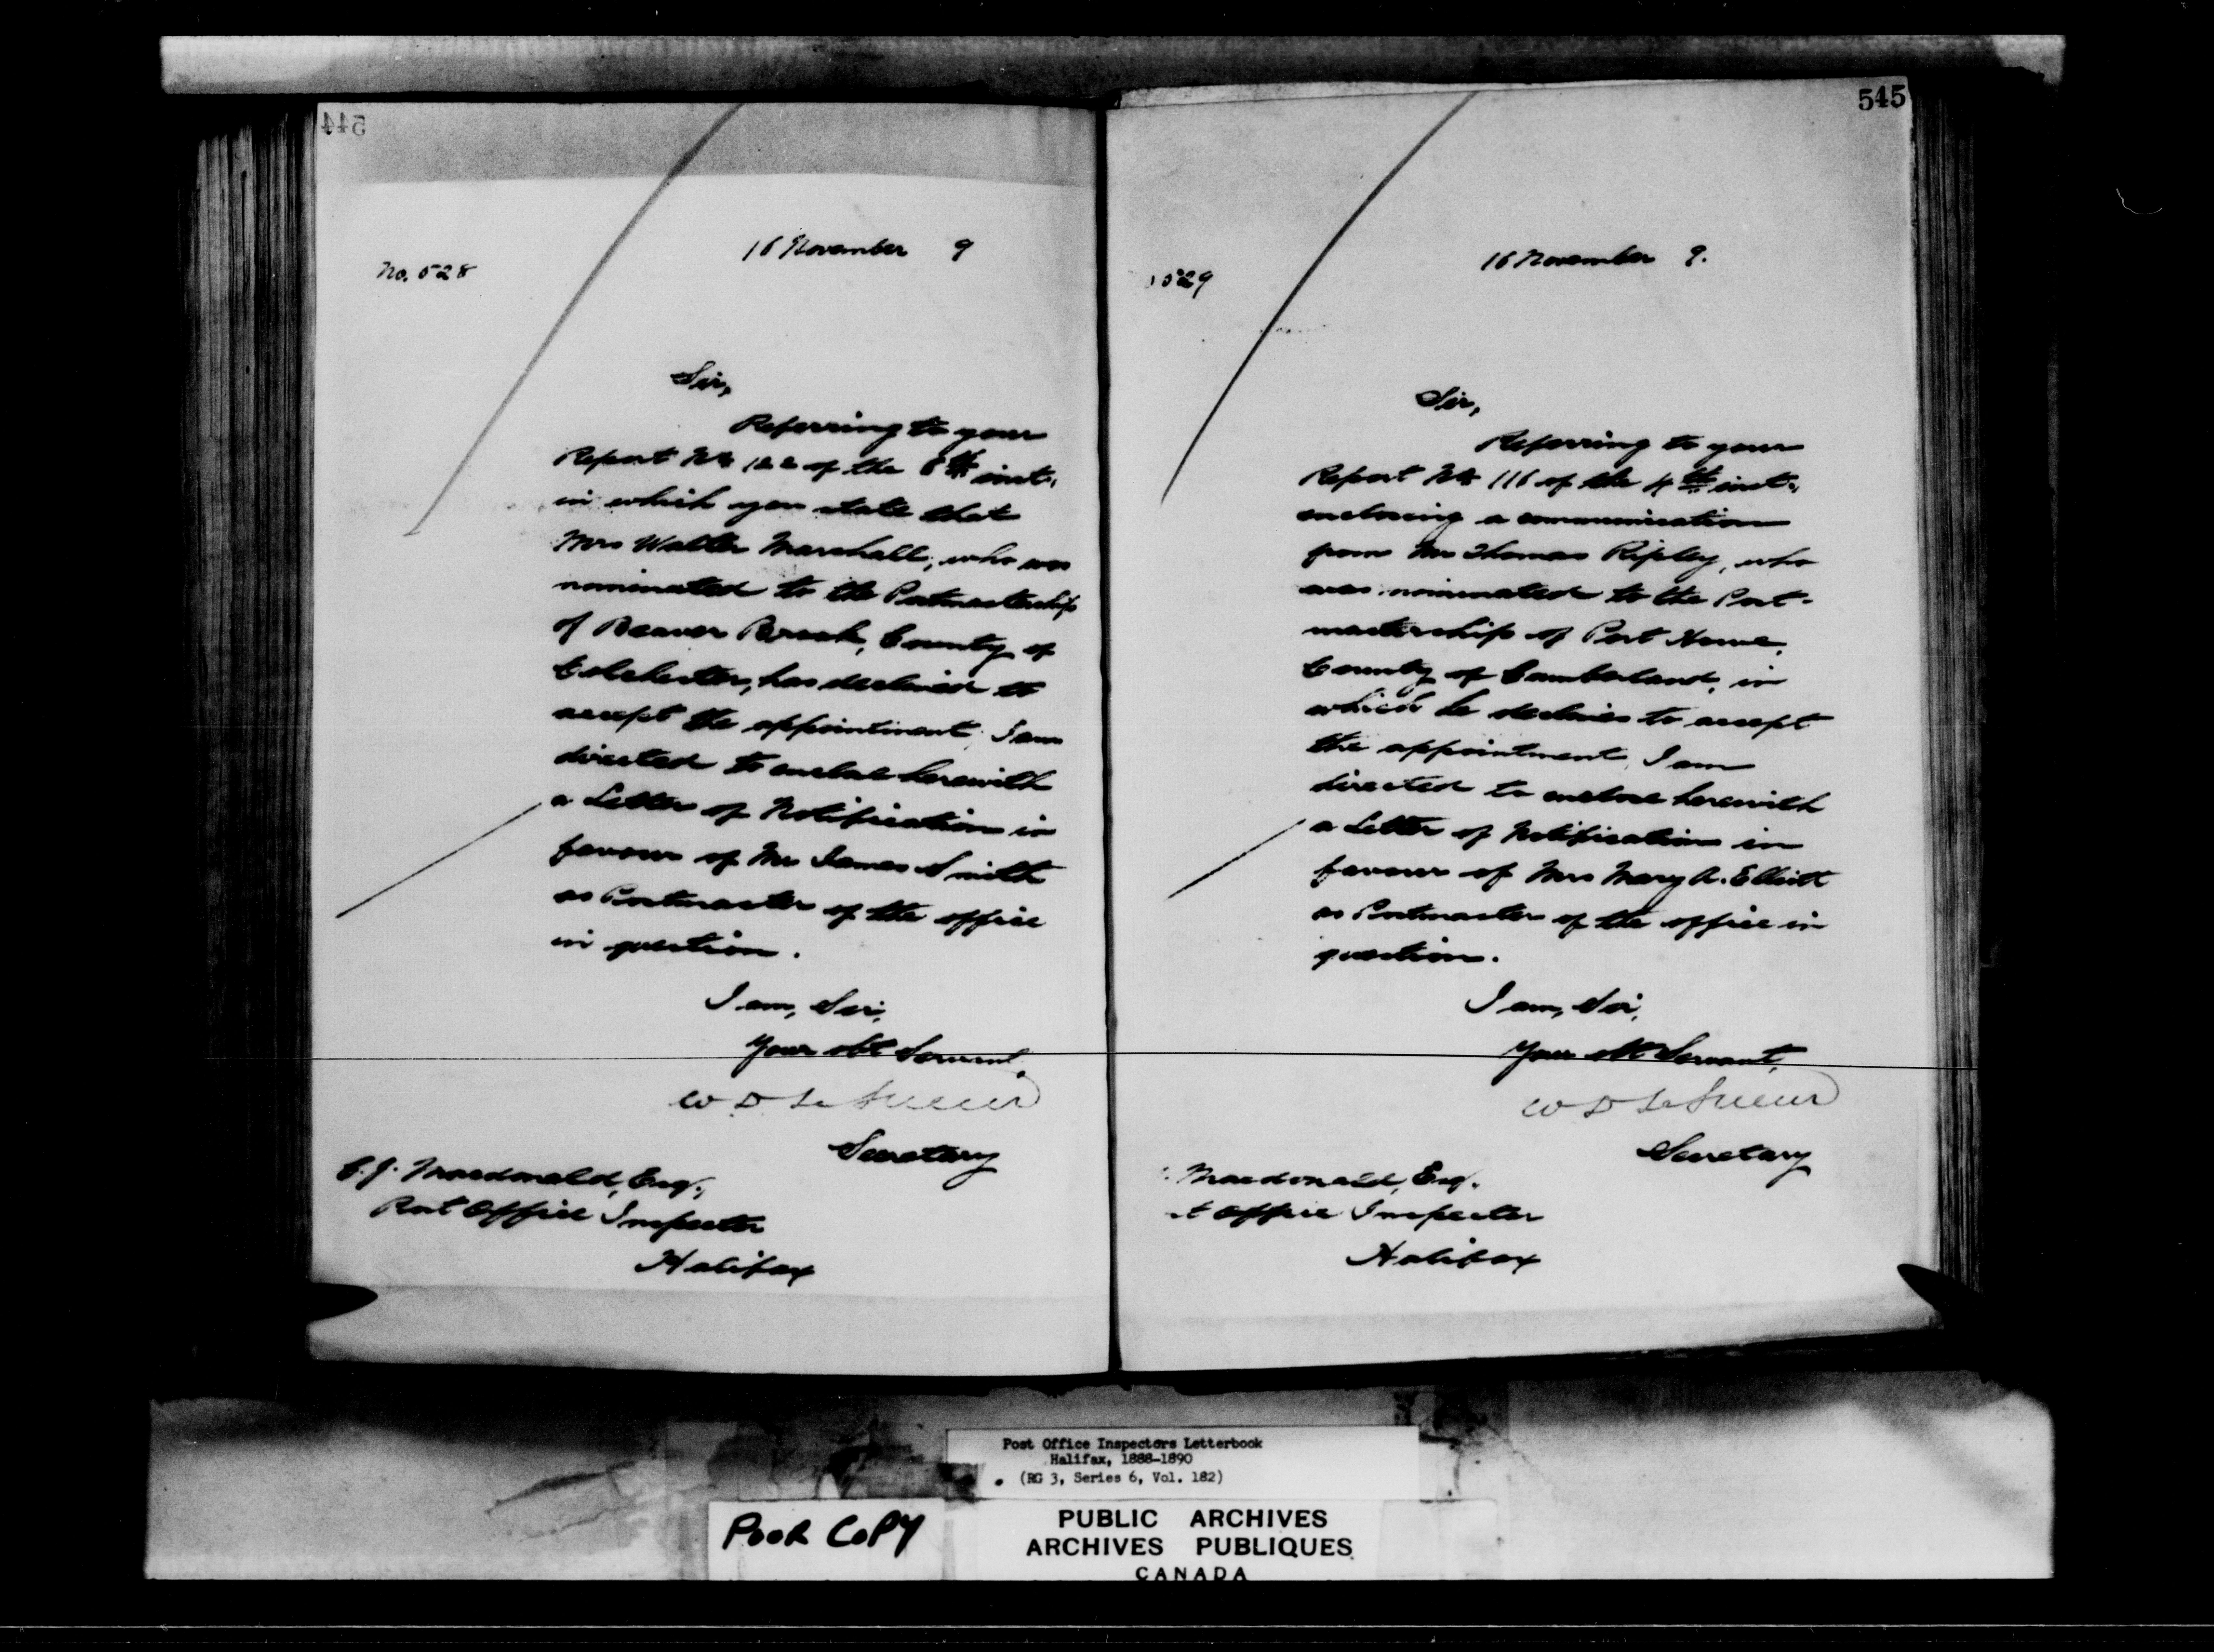 544
16 November 9
No. 528
Sir,
Referring to your
Report No 122 of the 8th inst.
in which you state that
Mrs Walter Marshall, who was
nominated to the Postmastership
of Beaver Brook, County of
Colchester, has declined to
accept the appointment, I am
directed to enclose herewith
a Letter of Notification in
favour of Mr James Smith
as Postmaster of the office
in question.
I am, Sir,
Your obt Servant,
W D LeSueur
Secretary
C. J. Macdonald, Esq.,
Post Office Inspector
Halifax
545
16 November 9.
529
Sir,
Referring to your
Report No 116 of the 4th inst.,
enclosing a communication
from Mr Thomas Ripley, who
was nominated to the Post-
mastership of Port Howe,
County of Cumberland, in
which he declines to accept
the appointment, I am
directed to enclose herewith
a Letter of Notification in
favour of Mrs Mary A. Elliott
as Postmaster of the office in
question.
I am, Sir,
Your obt Servant,
W D LeSueur
Secretary
Macdonald, Esq.
t Office Inspector
Halifax
Post Office Inspectors Letterbook
Halifax, 1888-1890
(RG 3, Series 6, Vol. 182)
POOR COPY
PUBLIC ARCHIVES
ARCHIVES PUBLIQUES
CANADA